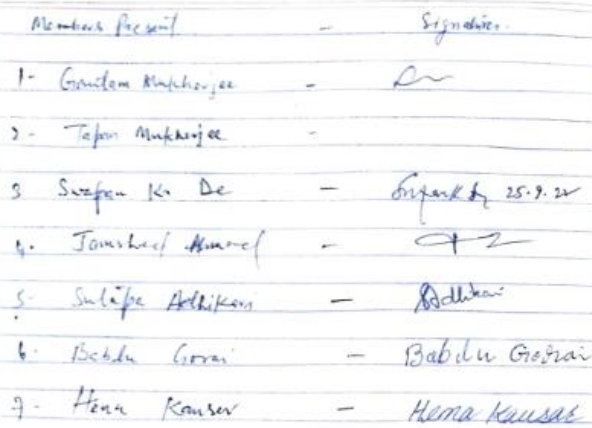 Members Present - Signatures.
1- Goutam Mukherjee -
2- Tapan Mukherjee -
3 Swapan Kr De - 25.9.22
4. Jamshed Ahmed -
5- Sutapa Adhikari - SAdhikari
6. Bablu Gorai - Bablu Gorai
7- Hena Kousar - Hena Kausar